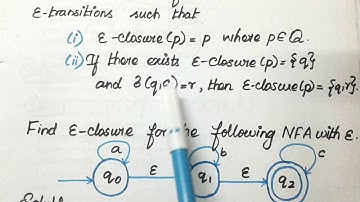 ε-transitions such that
(i) ε-closure(p) = p where p∈Q.
(ii) If there exists ε-closure(p) = {q}
and δ(q,ε) = r, then ε-closure(p) = {q,r}.
Find ε-closure for the following NFA with ε.
a b c
q0 ε q1 ε q2